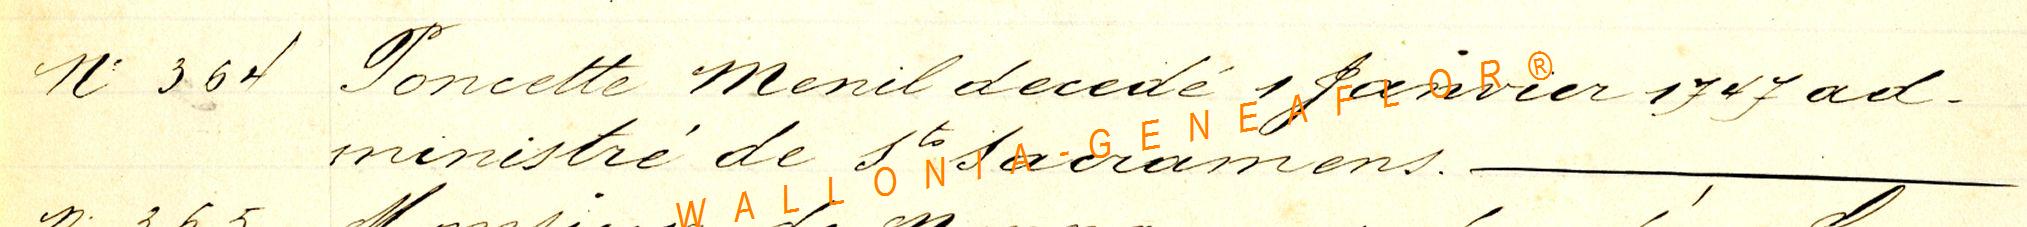 N° 364 Poncette Menil decedé 1 Janvier 1747 ad-
ministré de Sts Sacramens.
WALLONIA-GENEAFLOR®
N° 365